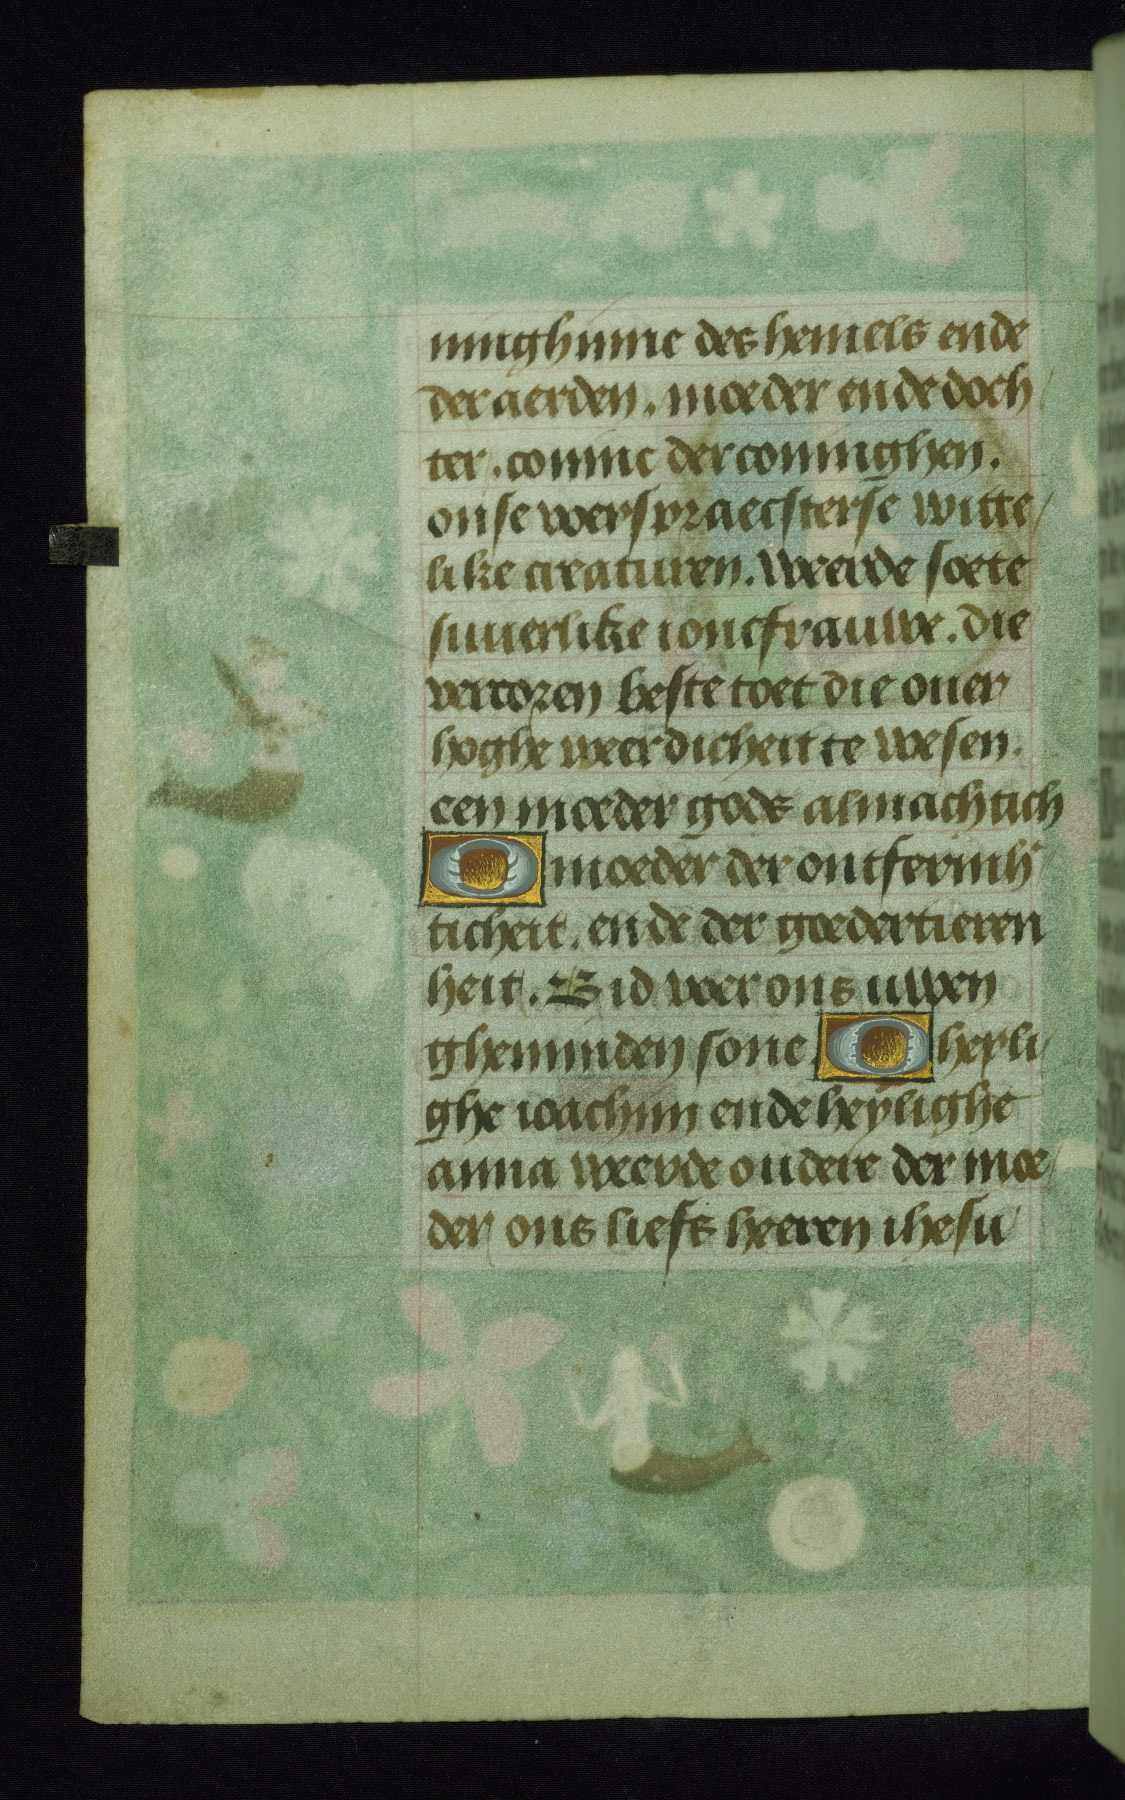 ninghinne des hemels ende
der aerden. moeder ende doch
ter. coninc der coninghen.
onse voerspraecsterse witte
like creaturen. Weerde soete
suuerlike ioncfrauwe. die
vercoren beste toet die ouer
hoghe weerdicheit te wesen.
een moeder gods almachtich
O moeder der ontfermh
ticheit. ende der goedertieren
heit. Bid voer ons uwen
gheminden sone. O heyli
ghe ioachim ende heylighe
anna weerde oudere der moe
der ons liefs heeren ihesu